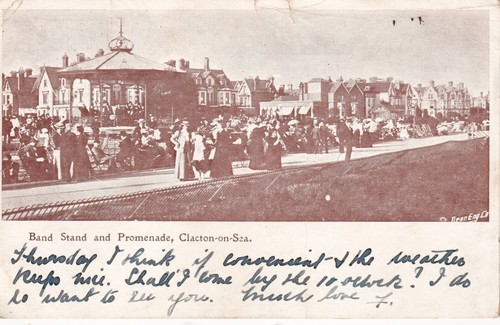 Band Stand and Promenade, Clacton-on-Sea.
Thursday I think if convenient & the weather
keeps nice. Shall I come by the 10 o'clock? I do
so want to see you. Much love